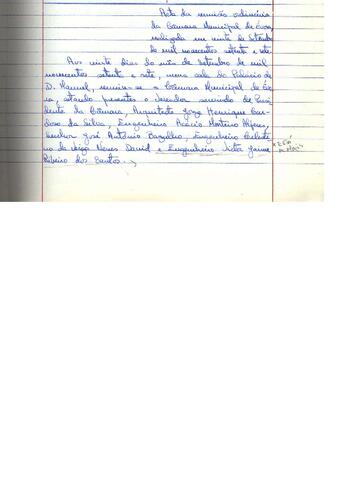 Acta da reunião ordinária
da Câmara Municipal de Évora,
realizada em vinte de Setembro
de mil novecentos setenta e sete.
Aos vinte dias do mês de Setembro de mil
novecentos setenta e sete, numa sala do Palácio de
D. Manuel, reuniu-se a Câmara Municipal de Évo
ra, estando presentes o Vereador servindo de Presi
dente da Câmara, Arquitecto Jorge Henrique Car
doso da Silva, Engenheiro Acácio Monteiro Alferes,
Senhor José António Bagulho, Engenheiro Celesti
no da Veiga Neves David e Engenheiro Victor Jaime
Ribeiro dos Santos.